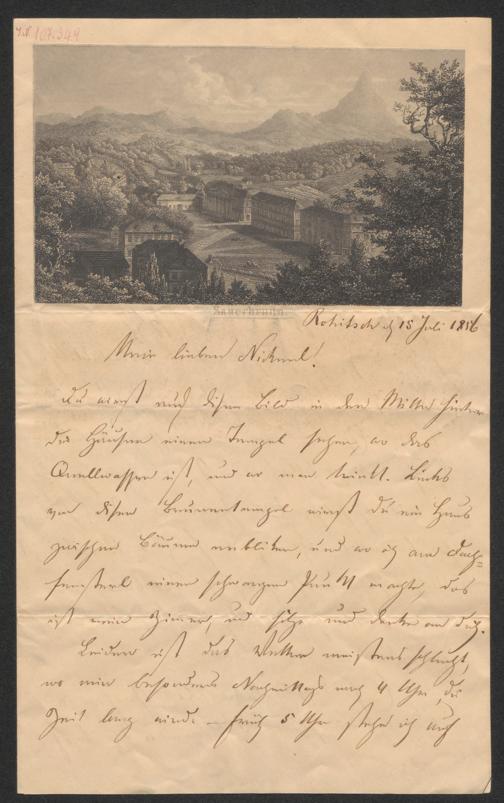 I.N. 107.349
Sauerbrunn.
Rohitsch d 15 Juli 1856
Mein lieber Nickerl!
Du wirst auf disen Bild in der Mitte hinter
die Häuser einen Tempel sehen, wo das
Quellwasser ist, und wo man trinkt. Links
von disen Brunnentempel wirst du ein Haus
zwischen Bäumen erbliken, und wo ich am Dach=
fensterl einen schwarzen Punkt machte, das
ist mein Zimerl, und sitze und denke an dich.
Leider ist das Wetter meistens schlecht,
wo mir besonders Nachmittags nach 4 Uhr, die
Zeit lang wird. – Früh 5 Uhr stehe ich auf